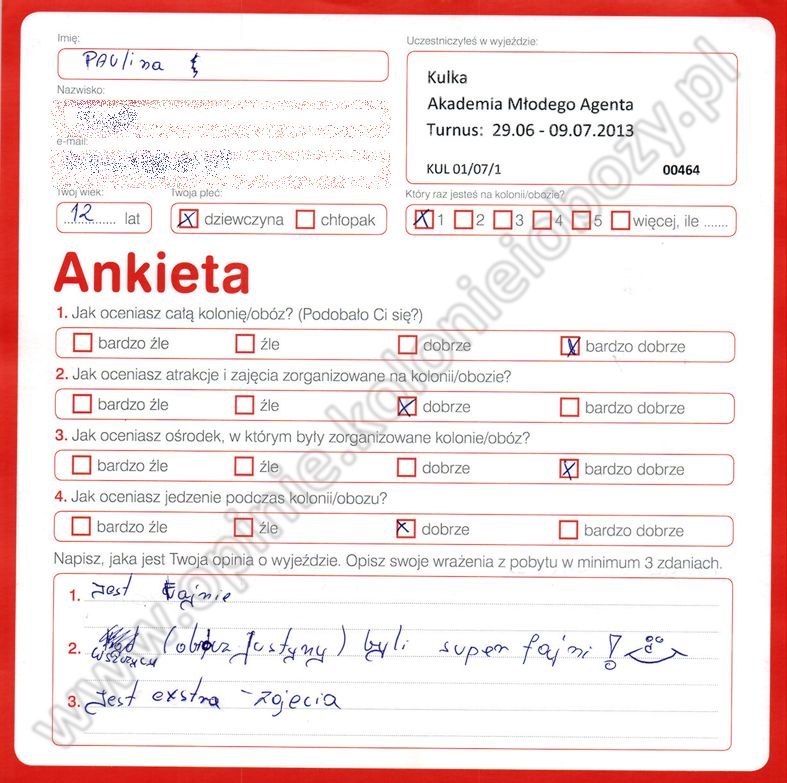 Imię:
Uczestniczyłeś w wyjeździe:
PAUlina
Kulka
Akademia Młodego Agenta
Turnus: 29.06 - 09.07.2013
KUL 01/07/1 00464
Nazwisko:
e-mail:
Twój wiek: Twoja płeć: Który raz jesteś na kolonii/obozie?
12 lat dziewczyna chłopak 1 2 3 4 5 więcej, ile .......
Ankieta
1. Jak oceniasz całą kolonię/obóz? (Podobało Ci się?)
bardzo źle źle dobrze bardzo dobrze
2. Jak oceniasz atrakcje i zajęcia zorganizowane na kolonii/obozie?
bardzo źle źle dobrze bardzo dobrze
3. Jak oceniasz ośrodek, w którym były zorganizowane kolonie/obóz?
bardzo źle źle dobrze bardzo dobrze
4. Jak oceniasz jedzenie podczas kolonii/obozu?
bardzo źle źle dobrze bardzo dobrze
Napisz, jaka jest Twoja opinia o wyjeździe. Opisz swoje wrażenia z pobytu w minimum 3 zdaniach.
1. Jest fajnie
2. (oprucz Justyny) byli super fajni!
3. Jest exstra zajecia
www.opinie.kolonieiobozy.pl